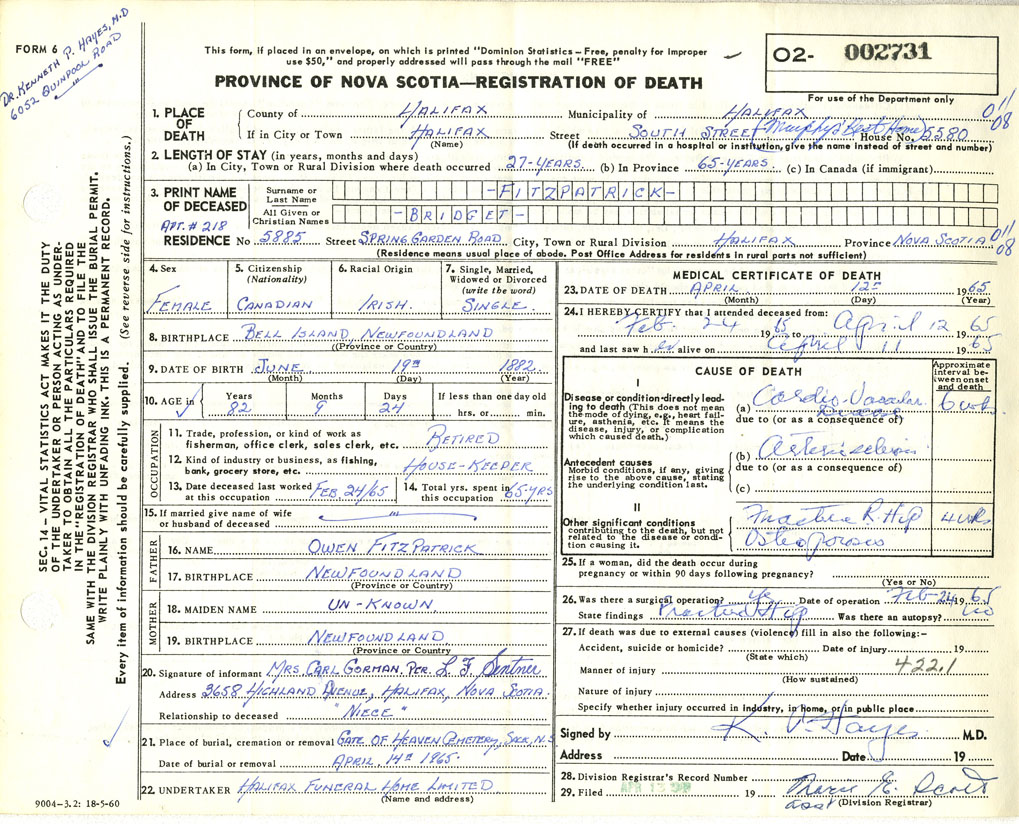 FORM 6
DR. KENNETH P. HAYES, M.D
6052 QUINPOOL ROAD
This form, if placed in an envelope, on which is printed "Dominion Statistics – Free, penalty for improper
use $50," and properly addressed will pass through the mail "FREE"
PROVINCE OF NOVA SCOTIA—REGISTRATION OF DEATH
O2- 002731
For use of the Department only
011
08
1. PLACE OF DEATH
County of HALIFAX Municipality of HALIFAX
If in City or Town HALIFAX Street SOUTH STREET (Murphy's Rest Home) House No. 5580
(Name) (If death occurred in a hospital or institution, give the name instead of street and number)
2. LENGTH OF STAY (in years, months and days)
(a) In City, Town or Rural Division where death occurred 27-YEARS (b) In Province 65-YEARS. (c) In Canada (if immigrant)
3. PRINT NAME OF DECEASED
Surname or Last Name -FITZPATRICK-
All Given or Christian Names -BRIDGET-
APT. # 218
RESIDENCE No 5885 Street SPRING GARDEN ROAD City, Town or Rural Division HALIFAX Province NOVA SCOTIA
011
08
(Residence means usual place of abode. Post Office Address for residents in rural parts not sufficient)
4. Sex
FEMALE
5. Citizenship
(Nationality)
CANADIAN
6. Racial Origin
IRISH.
7. Single, Married,
Widowed or Divorced
(write the word)
SINGLE.
8. BIRTHPLACE BELL ISLAND, NEWFOUNDLAND
(Province or Country)
9. DATE OF BIRTH JUNE 19TH 1882
(Month) (Day) (Year)
10. AGE in Years 82 Months 9 Days 24 If less than one day old
hrs. or min.
OCCUPATION
11. Trade, profession, or kind of work as
fisherman, office clerk, sales clerk, etc. RETIRED
12. Kind of industry or business, as fishing,
bank, grocery store, etc. HOUSE-KEEPER
13. Date deceased last worked
at this occupation FEB. 24/65
14. Total yrs. spent in
this occupation 65-YRS
15. If married give name of wife
or husband of deceased
FATHER
16. NAME OWEN FITZPATRICK
17. BIRTHPLACE NEWFOUNDLAND
(Province or Country)
MOTHER
18. MAIDEN NAME UN-KNOWN.
19. BIRTHPLACE NEWFOUNDLAND.
(Province or Country)
20. Signature of informant MRS. CARL GORMAN, PER. L. F. Sentner
Address 3658 HIGHLAND AVENUE, HALIFAX, NOVA SCOTIA.
Relationship to deceased "NIECE"
21. Place of burial, cremation or removal GATE OF HEAVEN CEMETERY, SACK, N.S.
Date of burial or removal APRIL 14TH 1965.
22. UNDERTAKER HALIFAX FUNERAL HOME LIMITED
(Name and address)
MEDICAL CERTIFICATE OF DEATH
23. DATE OF DEATH APRIL 12TH 1965
(Month) (Day) (Year)
24. I HEREBY CERTIFY that I attended deceased from:
Feb. 24 1965 to April 12 1965
and last saw h er alive on April 11 1965
CAUSE OF DEATH
Approximate
interval be-
tween onset
and death
I
Disease or condition-directly lead-
ing to death (This does not mean
the mode of dying, e.g., heart fail-
ure, asthenia, etc. It means the
disease, injury, or complication
which caused death.)
(a) Cardio-Vascular Disease 6 wks
due to (or as a consequence of)
Antecedent causes
Morbid conditions, if any, giving
rise to the above cause, stating
the underlying condition last.
(b) Arteriosclerosis
due to (or as a consequence of)
(c)
II
Other significant conditions
contributing to the death, but not
related to the disease or condi-
tion causing it.
Fracture R. Hip 4 wks
Osteoporosis
25. If a woman, did the death occur during
pregnancy or within 90 days following pregnancy?
(Yes or No)
26. Was there a surgical operation? Yes Date of operation Feb 24 1965
State findings Fractured Hip Was there an autopsy? no
27. If death was due to external causes (violence) fill in also the following:–
Accident, suicide or homicide? Date of injury 19
(State which)
Manner of injury 422.1
(How sustained)
Nature of injury
Specify whether injury occurred in industry, in home, or in public place
Signed by K. P. Hayes M.D.
Address Date 19
28. Division Registrar's Record Number
29. Filed APR 13 19 Marie E. Scott
asst (Division Registrar)
SEC. 14 – VITAL STATISTICS ACT MAKES IT THE DUTY
OF THE UNDERTAKER OR PERSON ACTING AS UNDER-
TAKER TO OBTAIN ALL THE PARTICULARS REQUIRED
IN THE "REGISTRATION OF DEATH" AND TO FILE THE
SAME WITH THE DIVISION REGISTRAR WHO SHALL ISSUE THE BURIAL PERMIT.
WRITE PLAINLY WITH UNFADING INK. THIS IS A PERMANENT RECORD.
Every item of information should be carefully supplied. (See reverse side for instructions.)
9004–3.2: 18-5-60